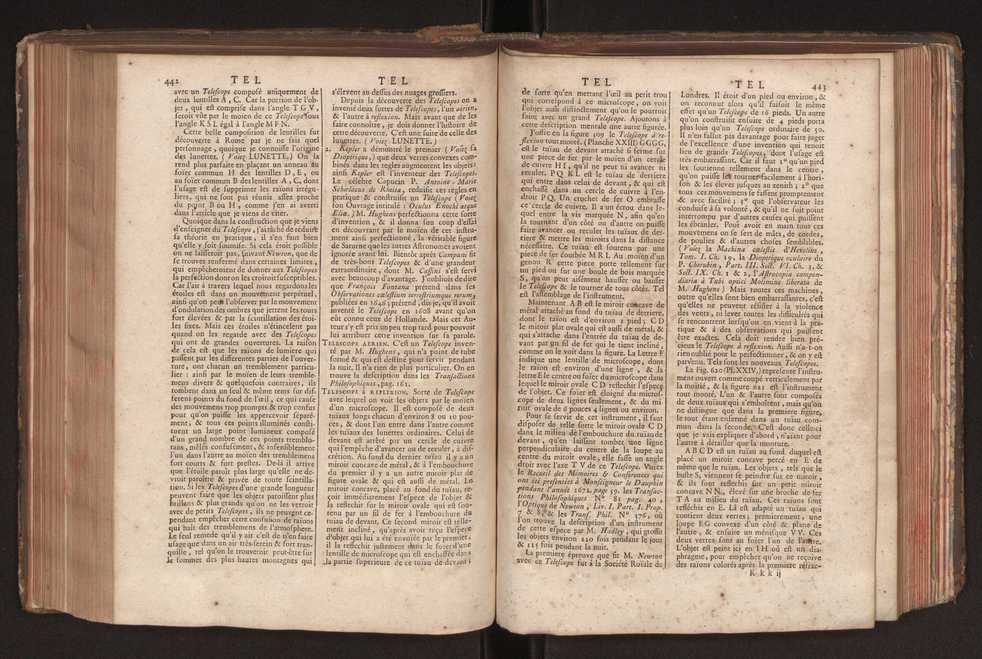 442
TEL
TEL
avec un Telescope composé uniquement de
deux lentilles A, C. Car la portion de l'ob-
jet, qui est comprise dans l'angle T G V,
seroit vûe par le moien de ce Telescope sous
l'angle K S L égal à l'angle M F N.
Cette belle composition de lentilles fut
découverte à Rome par je ne sai quel
personnage, quoique je connoisse l'origine
des lunettes. (Voïez LUNETTE.) On la
rend plus parfaite en plaçant un anneau au
foïer commun H des lentilles D, E, ou
au foïer commun B des lentilles A, C, dont
l'usage est de supprimer les raïons irrégu-
liers, qui ne sont pas réunis assés proche
du point B ou H, comme j'en ai averti
dans l'article que je viens de citer.
Quoique dans la construction que je viens
d'enseigner du Telescope, j'ai tâché de réduire
sa théorie en pratique, il s'en faut bien
qu'elle y soit soumise. Si cela étoit possible
on ne laisseroit pas, suivant Newton, que de
se trouver renfermé dans certaines limites,
qui empêcheroient de donner aux Telescopes
la perfection dont on les croiroit susceptibles.
Car l'air à travers lequel nous regardons les
étoiles est dans un mouvement perpétuel,
ainsi qu'on peut l'observer par le mouvement
d'ondulation des ombres que jettent les tours
fort élevées & par la scintillation des étoi-
les fixes. Mais ces étoiles n'étincelent pas
quand on les regarde avec des Telescopes
qui ont de grandes ouvertures. La raison
de cela est que les raïons de lumiere qui
passent par les differentes parties de l'ouver-
ture, ont chacun un tremblement particu-
lier : ainsi par le moïen de leurs tremble-
mens divers & quelquefois contraires, ils
tombent dans un seul & même tems sur dif-
ferens points du fond de l'œil, ce qui cause
des mouvemens trop prompts & trop confus
pour qu'on puisse les appercevoir séparé-
ment, & tous ces points illuminés consti-
tuent un large point lumineux composé
d'un grand nombre de ces points tremblo-
tans, mêlés confusément, & insensiblement
l'un dans l'autre au moïen des tremblemens
fort courts & fort prestes. De-là il arrive
que l'étoile paroît plus large qu'elle ne de-
vroit paroître & privée de toute scintilla-
tion. Si les Telescopes d'une grande longueur
peuvent faire que les objets paroissent plus
brillans & plus grands qu'on ne les verroit
avec de petits Telescopes, ils ne peuvent ce-
pendant empêcher cette confusion de raïons
qui naît des tremblemens de l'atmosphere.
Le seul remede qu'il y ait c'est de n'en faire
usage que dans un air très-serein & fort tran-
quille, tel qu'on le trouveroit peut-être sur
le sommet des plus hautes montagnes qui
s'élevent au dessus des nuages grossiers.
Depuis la découverte des Telescopes on a
inventé deux sortes de Telescopes, l'un aérien,
& l'autre à reflexion. Mais avant que de les
faire connoître, je dois donner l'histoire de
cette découverte. C'est une suite de celle des
lunettes. (Voïez LUNETTE.)
2. Kepler a démontré le premier (Voïez sa
Dioptrique,) que deux verres convexes com-
binés dans les regles augmentent les objets:
ainsi Kepler est l'inventeur des Telescopes.
Le célebre Capucin P. Antoine-Marie
Schirlæus de Rheita, réduisit ces regles en
pratique & construisit un Telescope (Voïez
son Ouvrage intitulé : Oculus Enochi atque
Eliæ.) M. Hughens perfectionna cette sorte
d'invention, & il donna son coup d'essai
en découvrant par le moïen de cet instru-
ment ainsi perfectionné, la véritable figure
de Saturne que les autres Astronomes avoient
ignorée avant lui. Bientôt après Campani fit
de très-bons Telescopes & d'une grandeur
extraordinaire, dont M. Cassini s'est servi
avec beaucoup d'avantage. J'oubliois de dire
que François Fontana prétend dans ses
Observationes cælestium terrestriumque rerum,
publiées en 1646; prétend, dis-je, qu'il avoit
inventé le Telescope en 1608 avant qu'on
eût connu ceux de Hollande. Mais cet Au-
teur s'y est pris un peu trop tard pour pouvoir
lui attribuer cette invention sur sa parole.
TELESCOPE AERIEN. C'est un Telescope inven-
té par M. Hughens, qui n'a point de tube
fermé & qui est destiné pour servir pendant
la nuit. Il n'a rien de plus particulier. On en
trouve la description dans les Transactions
Philosophiques, pag. 161.
TELESCOPE A REFLEXION. Sorte de Telescope
avec lequel on voit les objets par le moïen
d'un microscope. Il est composé de deux
tuïaux longs chacun d'environ 8 ou 10 pou-
ces, & dont l'un entre dans l'autre comme
les tuïaux des lunettes ordinaires. Celui de
devant est arrêté par un cercle de cuivre
qui l'empêche d'avancer ou de reculer, à dis-
crétion. Au fond du dernier tuïau il y a un
miroir concave de métal, & à l'embouchure
du premier il y a un autre miroir plat de
figure ovale & qui est aussi de métal. Le
miroir concave, placé au fond du tuïau, re-
çoit immédiatement l'espece de l'objet &
la refléchit sur le miroir ovale qui est sou-
tenu par un fil de fer à l'embouchure du
tuïau de devant. Ce second miroir est telle-
ment incliné, qu'après avoir reçu l'espece
d'objet qui lui a été envoïée par le premier,
il la refléchit justement dans le foïer d'une
lentille de microscope qui est enchassée dans
la partie superieure de ce tuïau de devant ;
TEL
TEL
443
de sorte qu'en mettant l'œil au petit trou
qui correspond à ce microscope, on voit
l'objet aussi distinctement qu'on le pourroit
faire avec un grand Telescope. Ajoutons à
cette description mentale une autre figurée.
J'offre en la figure 409 le Telescope à re-
flexion tout monté. (Planche XXIII) GGGG,
est le tuïau de devant attaché & ferme sur
une piece de fer par le moïen d'un cercle
de cuivre H I, qu'il ne peut ni avancer ni
reculer. P Q K L est le tuïau de derriere
qui entre dans celui de devant, & qui est
enchassé dans un cercle de cuivre à l'en-
droit P Q. Un crochet de fer O embrasse
ce cercle de cuivre. Il a un écrou dans le-
quel entre la vis marquée N, afin qu'en
la tournant d'un côté ou d'autre on puisse
faire avancer ou reculer les tuïaux de der-
riere & mettre les miroirs dans la distance
nécessaire. Ce tuïau est soutenu par une
piece de fer courbée M R L. Au moïen d'un
genou R cette piece porte tellement sur
un pied ou sur une boule de bois marquée
S, qu'on peut aisément hausser ou baisser
le Telescope & le tourner de tous côtés. Tel
est l'assemblage de l'instrument.
Maintenant A B est le miroir concave de
métal attaché au fond du tuïau de derriere,
dont le raïon est d'environ 2 pieds; C D
le miroir plat ovale qui est aussi de métal, &
qui s'attache dans l'entrée du tuïau de de-
vant par un fil de fer qui le tient incliné,
comme on le voit dans la figure. La lettre F
indique une lentille de microscope, dont
le raïon est environ d'une ligne, & la
lettre E le centre ou foïer du microscope dans
lequel le miroir ovale C D refléchit l'espece
de l'objet. Ce foïer est éloigné du micros-
cope de deux lignes seulement, & du mi-
roir ovale de 6 pouces 4 lignes ou environ.
Pour se servir de cet instrument, il faut
disposer de telle sorte le miroir ovale C D
dans le milieu de l'embouchure du tuïau de
devant, qu'en laissant tomber une ligne
perpendiculaire du centre de la loupe au
centre du miroir ovale, elle fasse un angle
droit avec l'axe T V de ce Telescope. Voïez
le Recueil des Mémoires & Conferences qui
ont été presentées à Monseigneur le Dauphin
pendant l'année 1672. page 59. les Transac-
tions Philosophiques N° 81. pag. 40,
l'Optique de Newton, Liv. I. Part. I. Prop.
7. & 8. & les Trans. Phil. N° 376, où
l'on trouve la description d'un instrument
de cette espece par M. Hadley, qui grossit
les objets environ 220 fois pendant le jour
& 125 fois pendant la nuit.
La premiere épreuve que fit M. Newton
avec ce Telescope fut à la Société Roïale de
Londres. Il étoit d'un pied ou environ, &
on reconnut alors qu'il faisoit le même
effet qu'un Telescope de 16 pieds. Un autre
qu'on construisit ensuite de 4 pieds porta
plus loin qu'un Telescope ordinaire de 50.
Il n'en fallut pas davantage pour faire juger
de l'excellence d'une invention qui tenoit
lieu de grands Telescopes, dont l'usage est
très embarrassant. Car il faut 1° qu'un pied
les soutienne tellement dans le centre,
qu'on puisse les tourner facilement à l'hori-
son & les élever jusques au zenith ; 2° que
tous ces mouvemens se fassent promptement
& avec facilité ; 3° que l'observateur les
conduise à sa volonté, & qu'il ne soit point
interrompu par d'autres causes qui puissent
les ébranler. Pour avoir en main tous ces
mouvemens on se sert de mâts, de cordes,
de poulies & d'autres choses semblables.
(Voïez la Machina cælestis d'Hevelius,
Tom. I. Ch. 19. la Dioptrique oculaire du
P. Cherubin, Part. III. Sect. VI. Ch. 3, &
Sect. IX. Ch. 1 & 2, l'Astroscopia compen-
diaria à Tubi optici Molimine liberata de
M. Hughens) Mais toutes ces machines,
outre qu'elles sont bien embarrassantes, c'est
qu'elles ne peuvent résister à la violence
des vents, ni lever toutes les difficultés qui
se rencontrent lorsqu'on en vient à la pra-
tique & à des observations qui puissent
être exactes. Cela doit rendre bien pré-
cieux le Telescope à reflexion. Aussi n'a-t-on
rien oublié pour le perfectionner, & on y est
parvenu. Tels sont les nouveaux Telescopes.
La Fig. 620 (Pl. XXIV.) représente l'instru-
ment ouvert comme coupé verticalement par
moitié, & la figure 621 est l'instrument
tout monté. L'un & l'autre sont composés
de deux tuïaux qui s'emboîtent, mais qu'on
ne distingue que dans la premiere figure,
le tout étant enfermé dans un tuïau com-
mun dans la seconde. C'est donc celle-ci
que je vais expliquer d'abord, n'aïant pour
l'autre à détailler que la monture.
A B C D est un tuïau au fond duquel est
placé un miroir concave percé en E de
même que le tuïau. Les objets, tels que le
buste S, viennent se peindre sur ce miroir,
& ils sont refléchis sur un petit miroir
concave N N, élevé sur une broche de fer
T A au milieu du tuïau. Ces raïons sont
refléchis en E. Là est adapté un tuïau qui
contient deux verres; premierement, une
loupe E G convexe d'un côté & plane de
l'autre, & ensuite un ménisque V V. Ces
deux verres sont au foïer l'un de l'autre.
L'objet est peint ici en I H où est un dia-
phragme, pour empêcher qu'on ne reçoive
des raïons colorés après la premiere refrac-
K k k ij